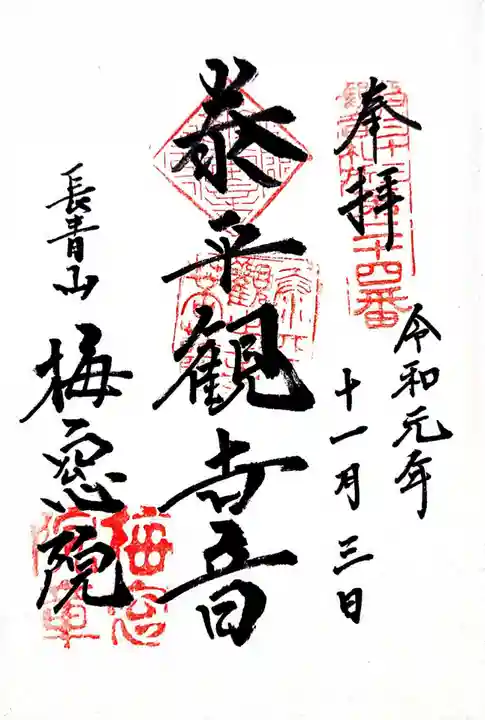 奉拝
令和元年
十一月三日
泰平観世音
長青山
梅窓院
二十四番